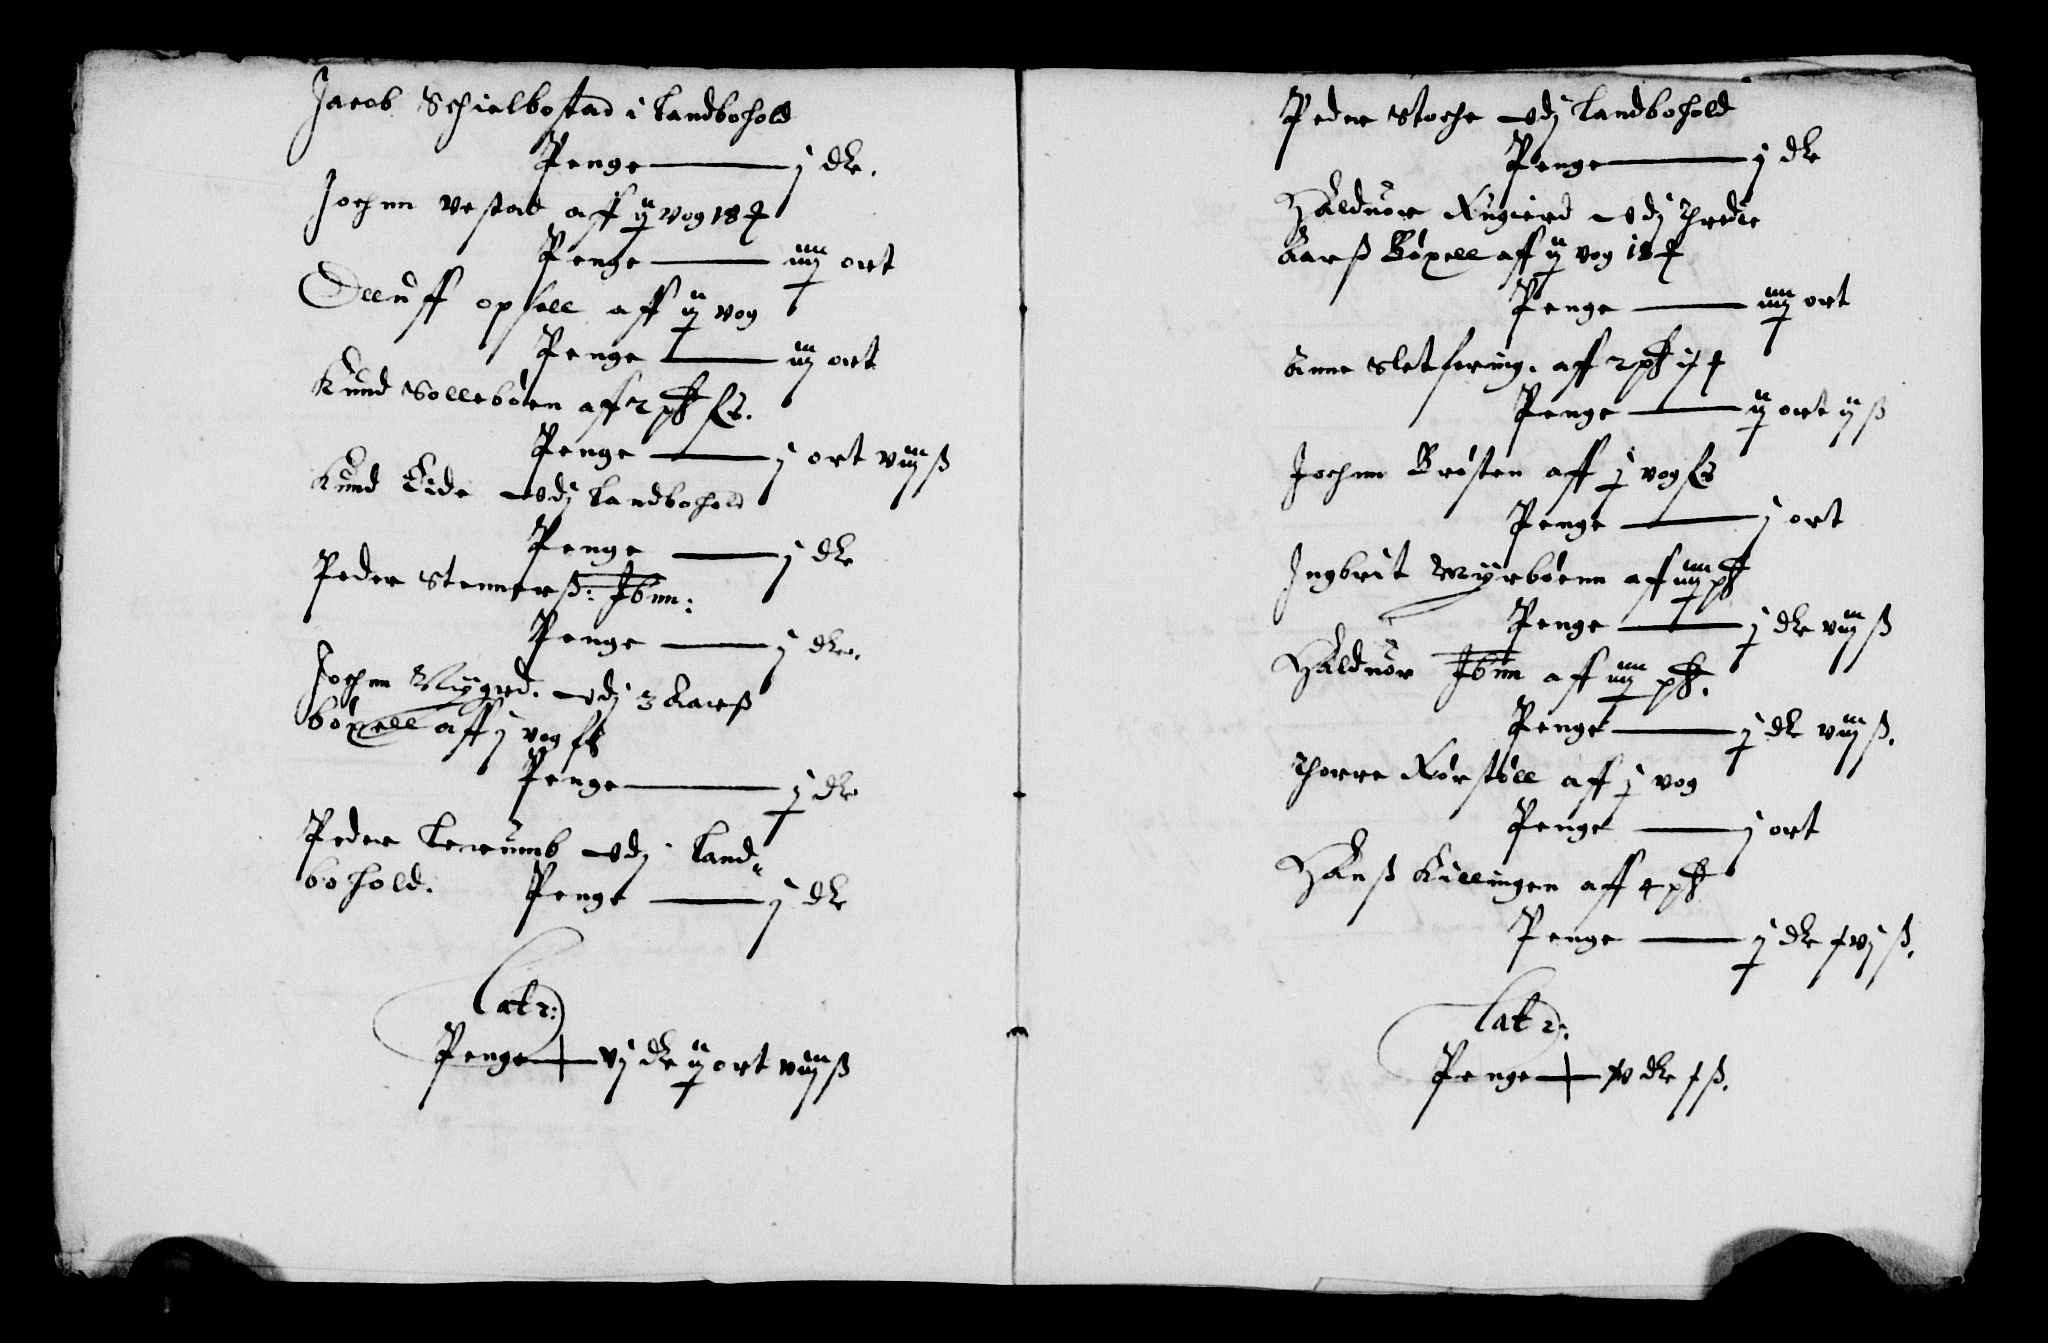 Jacob Schielbostad i landbohold
Penge — j dlr.
Jochm vestad aff ij vog 18 ₰
Penge — iiij ort
Oluff opsell aff ij vog
Penge — iij ort
Knud Sollebøen aff 2 pd fs.
Penge — j ort viij ß
Knud Eide vdj landbohold
Penge — j dlr
Peder Stennerß: Ibm:
Penge — j dlr.
Jochm Nÿgrd. vdj 3 Aarß
bøxell aff j vog fs
Penge — j dlr
Peder Lerumb vdj land
bohold. Penge — j dlr
Latr:
Penge — vj dlr ij ort viij ß
Peder Stoche vdj landbohold
Penge — j dlr
Halduor Nygierd vdj thredie
Aarß Bøxell aff ij vog 18 ₰
Penge — iiij ort
Anne Sletfering. aff 2 pd
Penge — ij ort ij ß
Jochm Brøsten aff j vog fs
Penge — j ort
Ingbrit Myrbøenn aff iiij pd
Penge — j dlr viij ß
Halduor Ibm aff iiij pd.
Penge — j dlr viij ß.
Thorre Nørstøll aff j vog
Penge — j ort
Hanß Killingen aff 4 pd
Penge — j dlr xvj ß.
Latr:
Penge — xv dlr x ß.